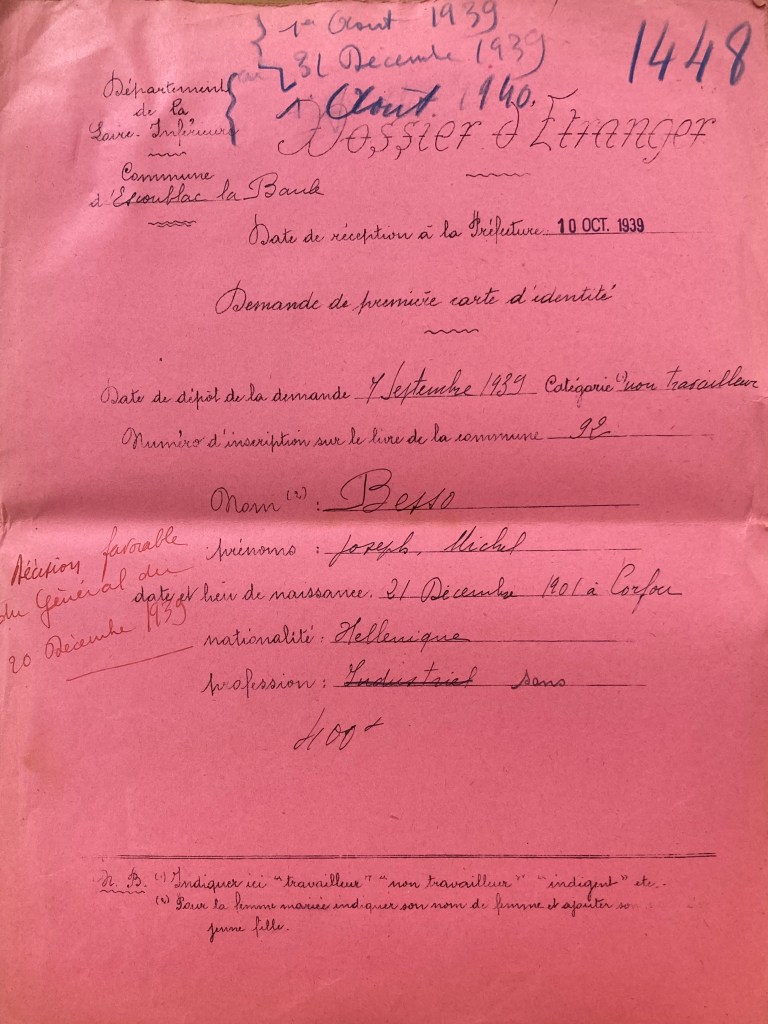 1er Août 1939
au 31 Décembre 1939
1448
Département
de la
Loire-Inférieure
1r Août 1940.
Dossier d'Etranger
Commune
d'Escoublac la Baule
Date de réception à la Préfecture 10 OCT. 1939
Demande de première carte d'identité
Date de dépôt de la demande 7 Septembre 1939 Catégorie (1) non travailleur
Numéro d'inscription sur le livre de la commune 92
Nom (2) : Besso
prénoms : Joseph, Michel
date et lieu de naissance. 21 Décembre 1901 à Corfou
nationalité : Hellenique
profession : Industriel sans
Décision favorable
du Général du
20 Décembre 1939
400
N. B. (1) Indiquer ici "travailleur" "non travailleur" "indigent" etc.-
(2) Pour la femme mariée indiquer son nom de femme et ajouter son
jeune fille.